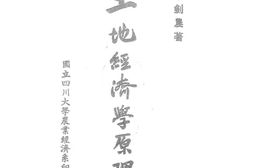 劍農著
土地經濟學原理
國立四川大學農業經濟系印